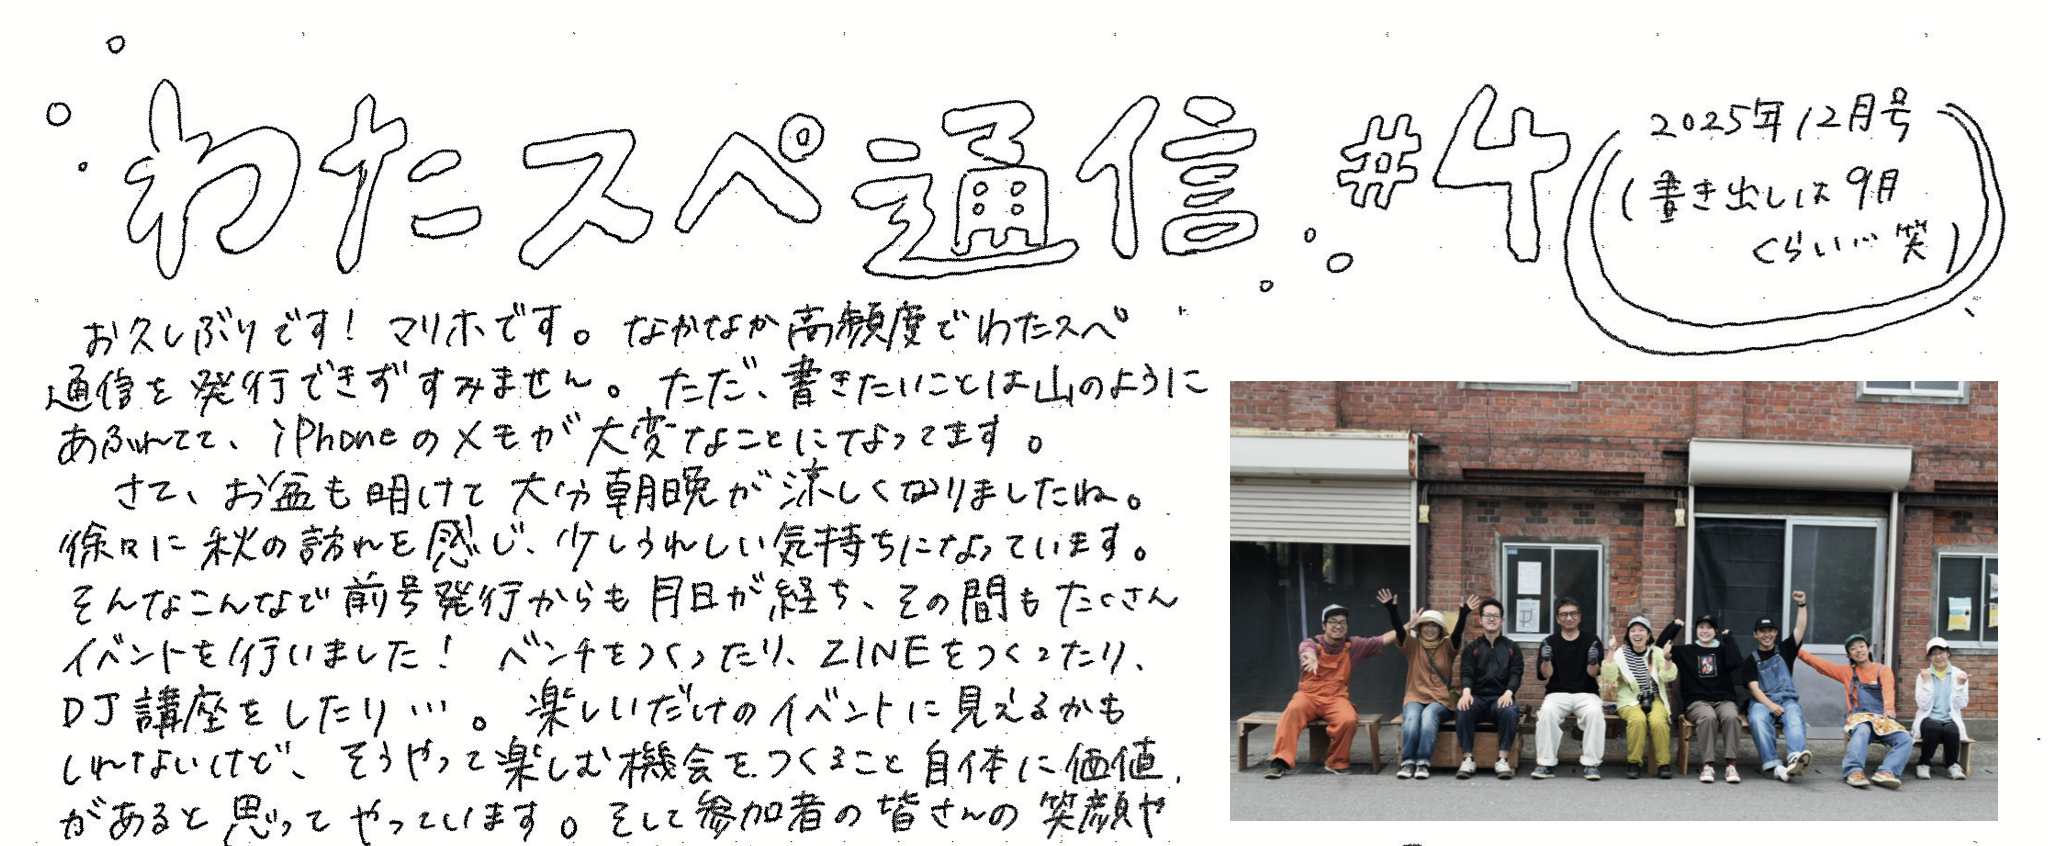 わたスペ通信 #4
2025年12月号
(書き出しは9月
くらい…笑)
お久しぶりです! マリホです。なかなか高頻度でわたスペ
通信を発行できずすみません。ただ、書きたいことは山のように
あふれてて、iPhoneのメモが大変なことになってます。
さて、お盆も明けて大分朝晩が涼しくなりましたね。
徐々に秋の訪れを感じ、少しうれしい気持ちになっています。
そんなこんなで前号発行からも月日が経ち、その間もたくさん
イベントを行いました! ベンチをつくったり、ZINEをつくったり、
DJ講座をしたり…。楽しいだけのイベントに見えるかも
しれないけど、そうやって楽しむ機会をつくること自体に価値
があると思ってやっています。そして参加者の皆さんの笑顔や